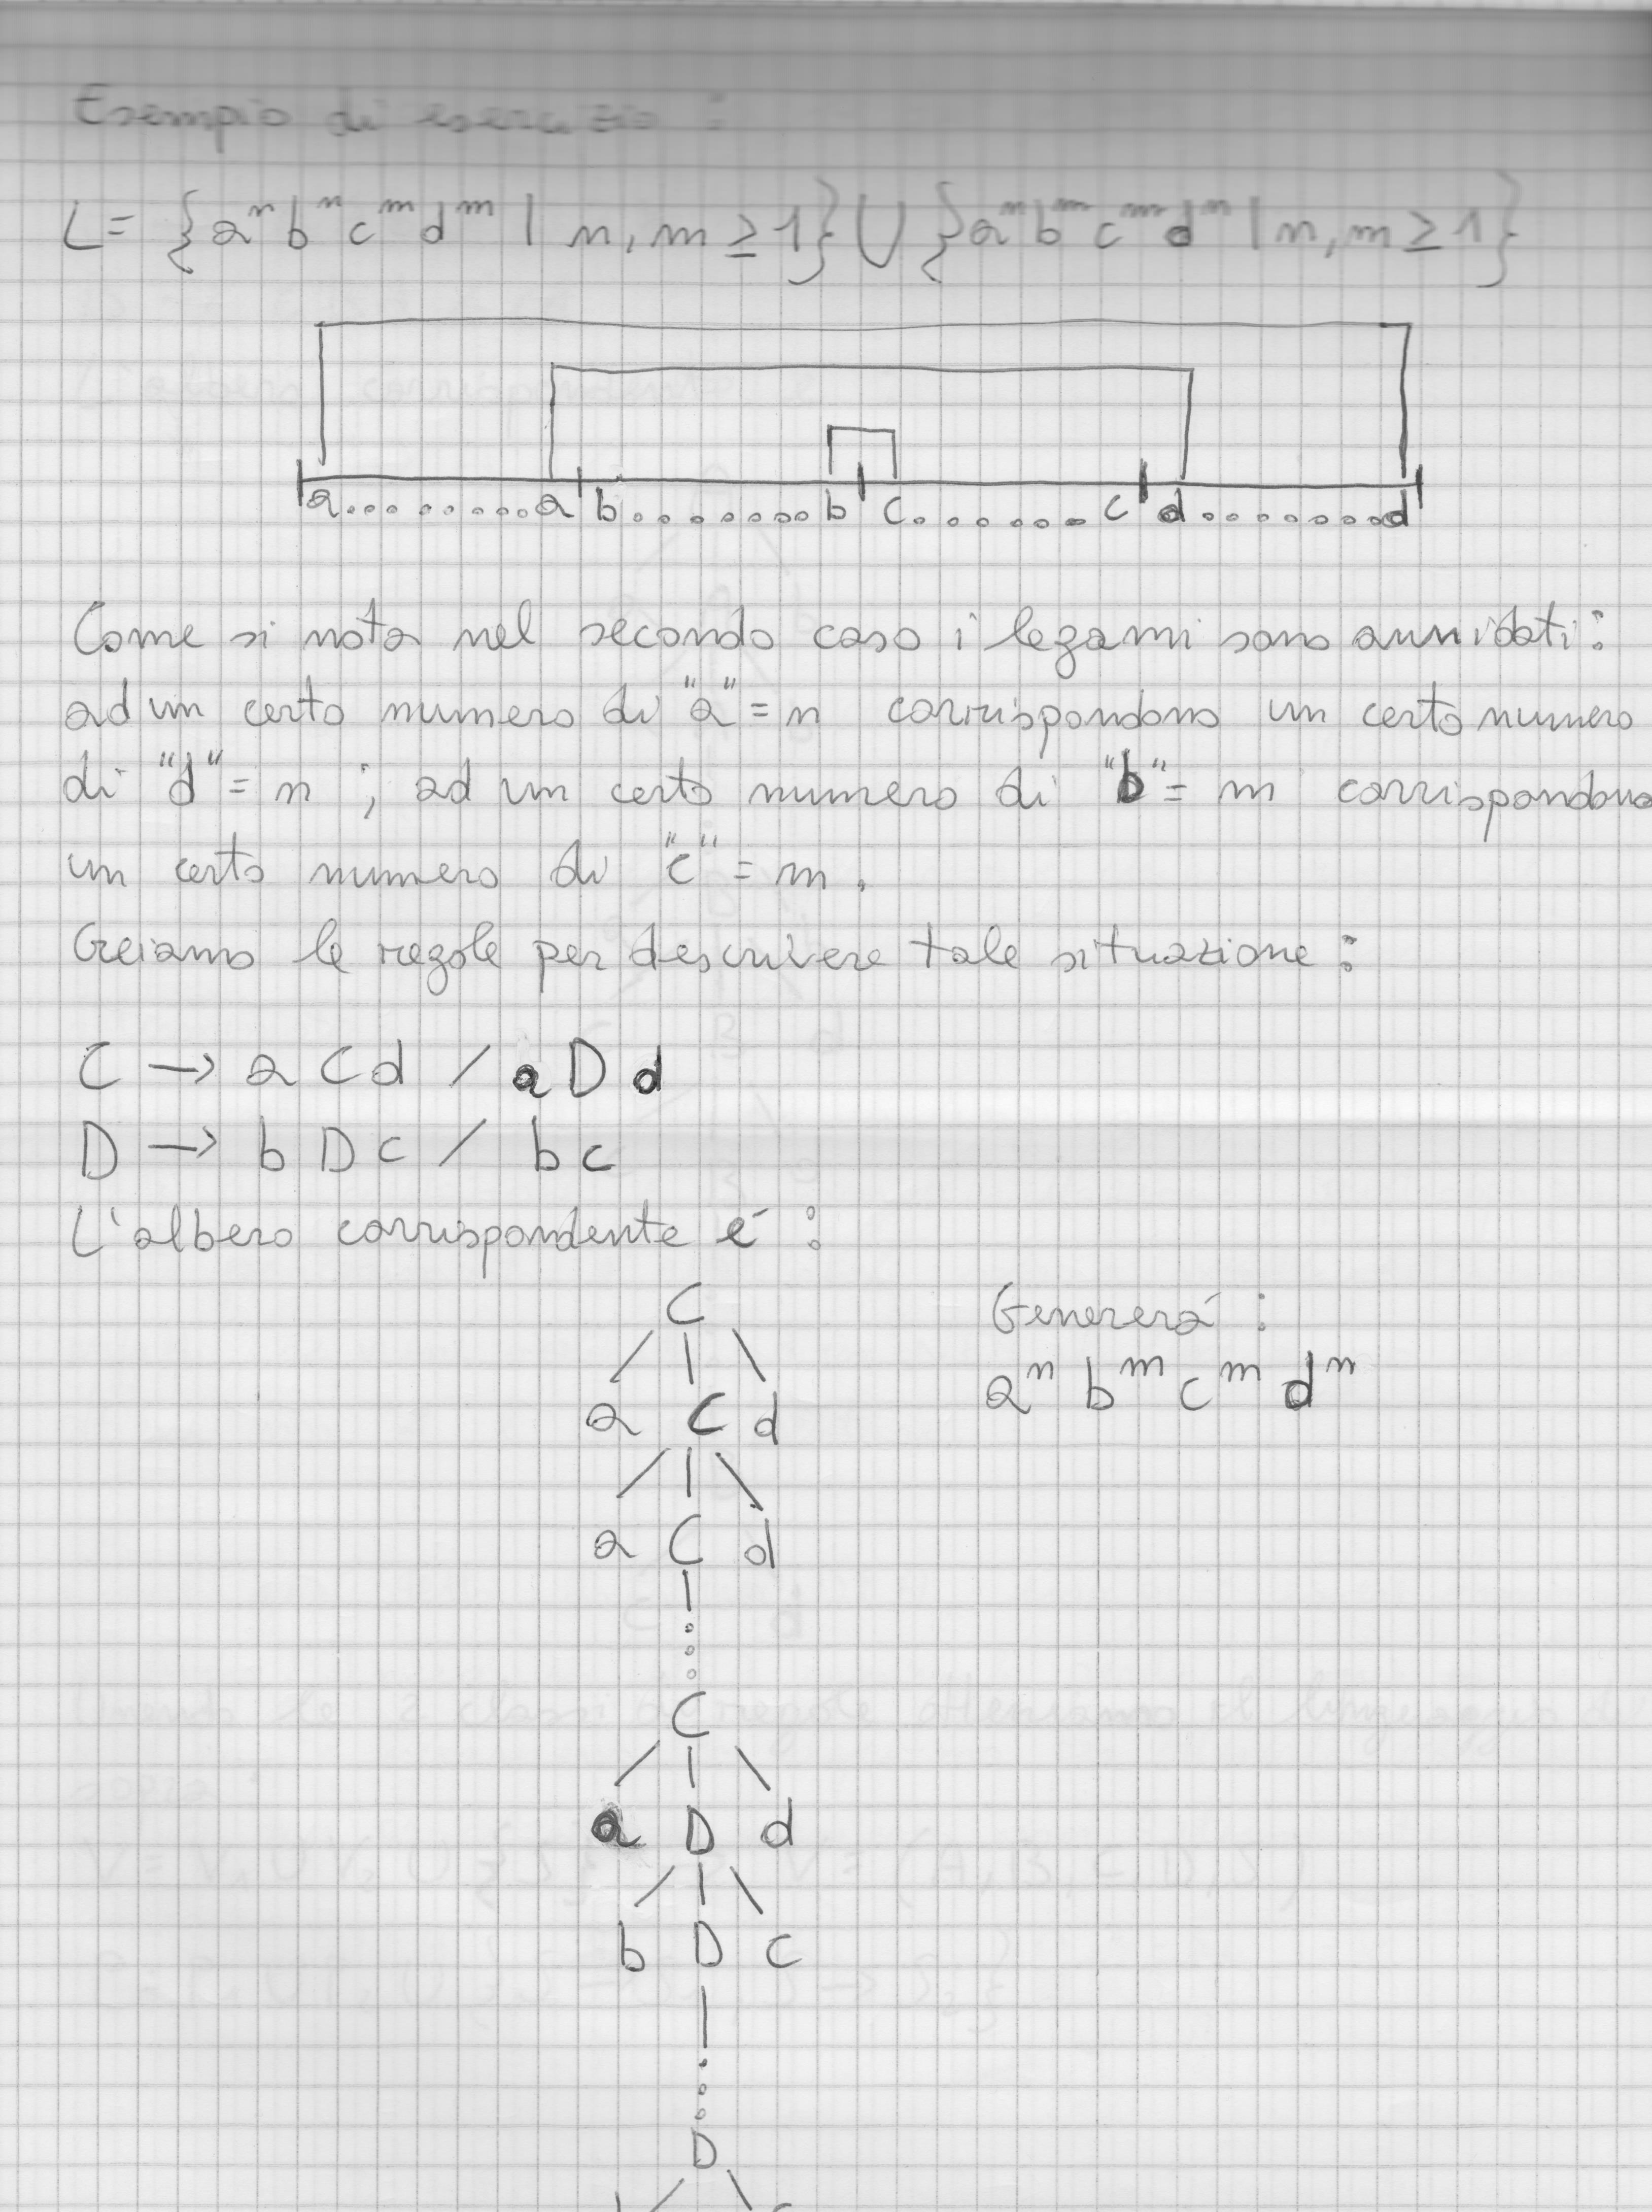 Esempio di esercizio :
L = {aⁿ bⁿ cᵐ dᵐ | n, m ≥ 1} ∪ {aⁿ bᵐ cᵐ dⁿ | n, m ≥ 1}
a.........a b........b c.......c d........d
Come si nota nel secondo caso i legami sono annidati:
ad un certo numero di "a" = n corrispondono un certo numero
di "d" = n ; ad un certo numero di "b" = m corrispondono
un certo numero di "c" = m .
Creiamo le regole per descrivere tale situazione :
C → a C d / a D d
D → b D c / b c
L'albero corrispondente é :
C
Genererá :
aⁿ bᵐ cᵐ dⁿ
a C d
a C d
C
a D d
b D c
D